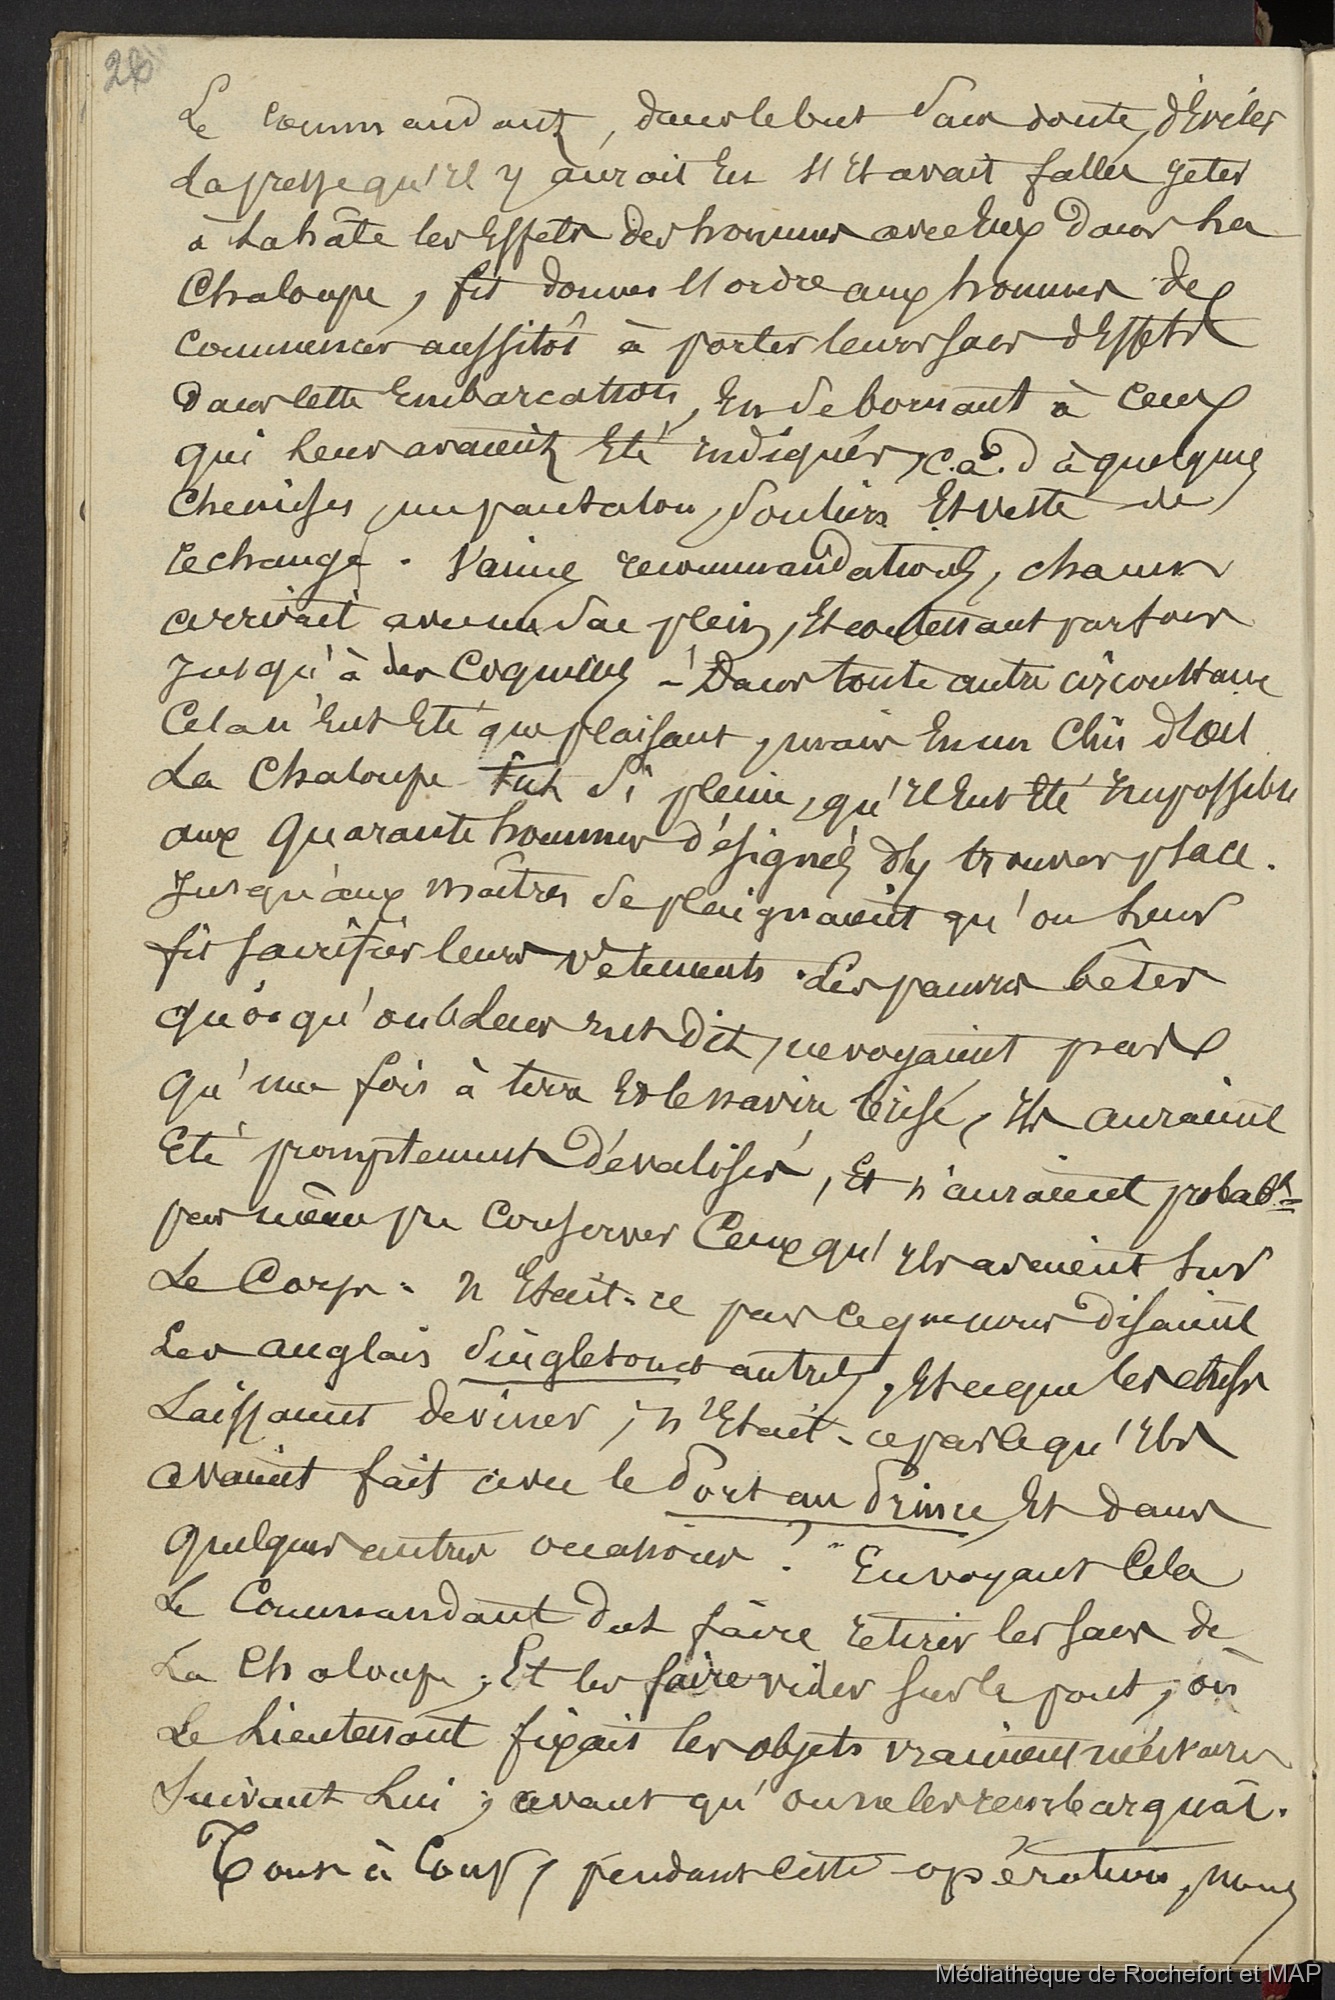 26
Le commandant, dans le but sans doute, d'éviter
la presse qu'il y aurait eu s'il avait fallu geter
à la hâte les effets des hommes avec eux dans la
Chaloupe, fit donner l'ordre aux hommes de
commencer aussitôt à porter leurs sacs d'effets
dans cette embarcation, en se bornant à ceux
qui leur avaient été indiqués, c.à.d à quelques
chemises, un pantalon, souliers et veste de
rechange. Vaines recommandations, chacun
arrivait avec un sac plein, et contenant parfois
jusqu'à des coquilles - Dans toute autre circonstance
Cela n'eut été que plaisant, mais en un clin d'œil
la Chaloupe fut si pleine, qu'il eut été impossible
aux quarante hommes désignés d'y trouver place.
Jusqu'aux maîtres se plaignaient qu'on leur
fit sacrifier leurs vêtements. Les pauvres bêtes
quoiqu'on leur eut dit, ne voyaient pas
qu'une fois à terre et le navire brisé, ils auraient
été promptement dévalisés, et n'auraient probablt
pas même pu conserver ceux qu'ils avaient sur
le Corps. N'était-ce pas ce que nous disaient
les anglais Singleton et autres, et ce que les chefs
laissaient deviner; n'était-ce pas ce qu'ils
avaient fait avec le Port au Prince et dans
quelques autres occasions? En voyant cela
le Commandant dut faire retirer les sacs de
la Chaloupe; et les faire vider sur le pont, où
le Lieutenant fixait les objets vraiment nécessaires
suivant lui; avant qu'on ne les rembarquât.
Tout à coup, pendant cette opération, nous
Médiathèque de Rochefort et MAP